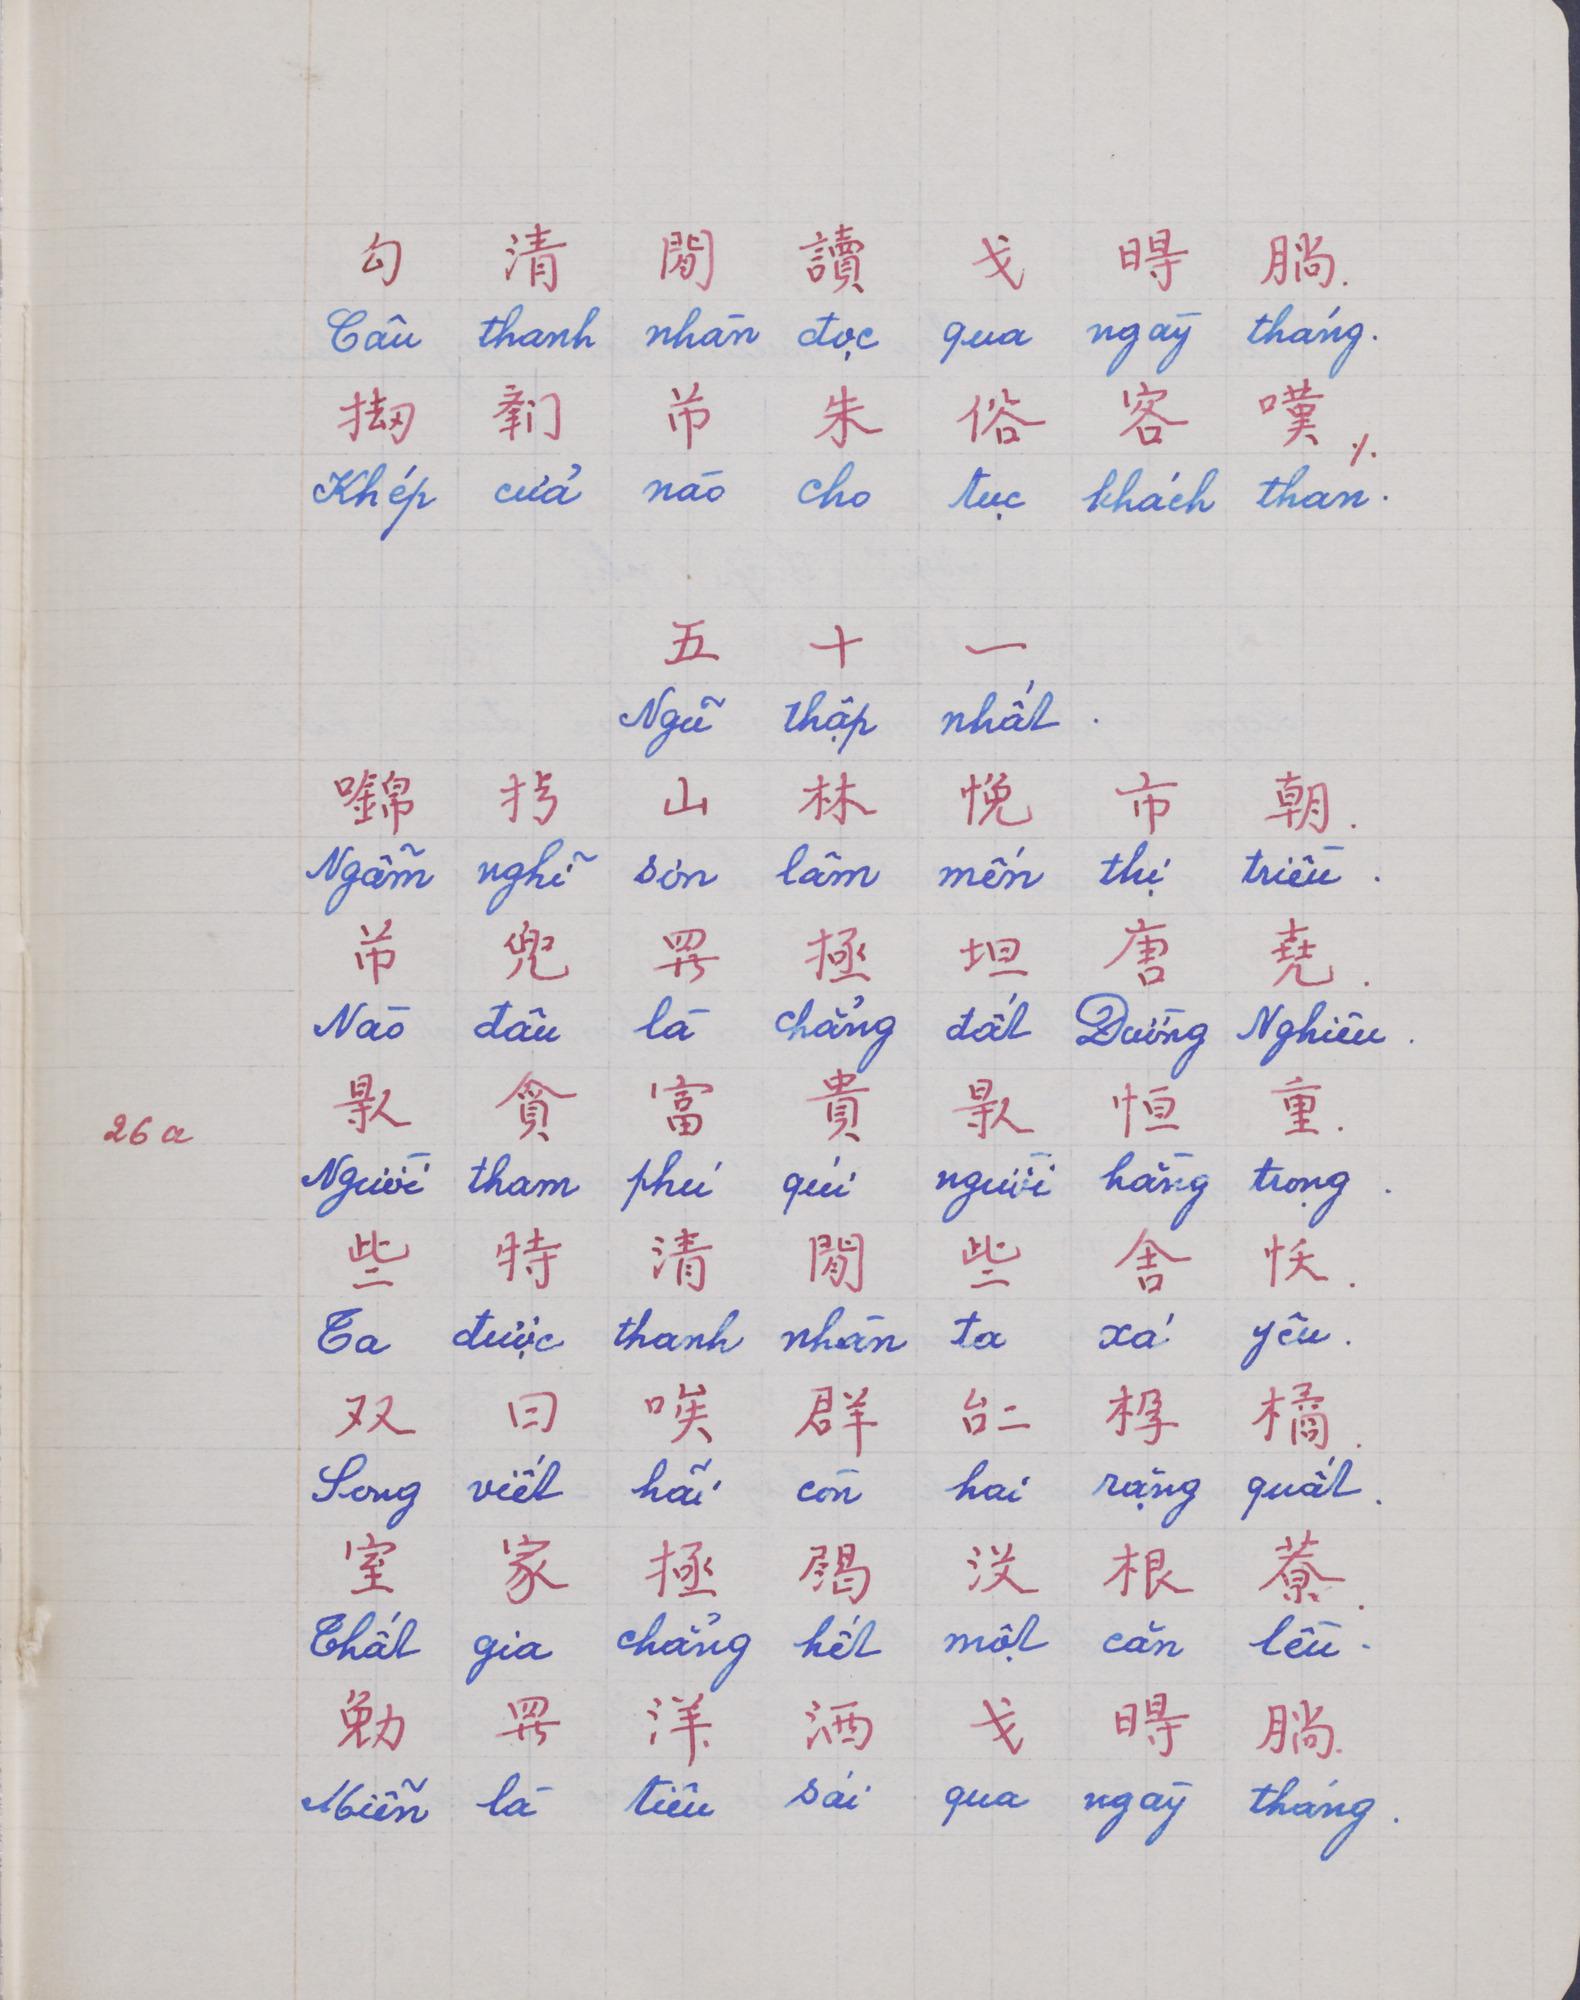 勾 清 閒 讀 戈 㫷 𦝄.
Câu thanh nhàn đọc qua ngày tháng.
朱 俗 客 嘆 ⁒
Khép cửa nào cho tục khách than.
五 十 一
Ngũ thập nhất.
山 林 悅 市 朝.
Ngẫm nghĩ sơn lâm mến thị triều.
兜 𱺵 極 坦 唐 堯.
Nào đâu là chẳng đất Đường Nghiêu.
𠊛 貪 富 貴 𠊛 恒 重.
26a
Người tham phú quí người hằng trọng.
些 特 清 閒 些 舍 㤇.
Ta được thanh nhàn ta xá yêu.
双 曰 唉 群 𠄩 橘.
Song viết hãi còn hai rặng quất.
室 家 極 歇 沒 根 藔.
Thất gia chẳng hết một căn lều.
勉 𱺵 洋 洒 戈 㫷 𦝄.
Miễn là tiêu sái qua ngày tháng.